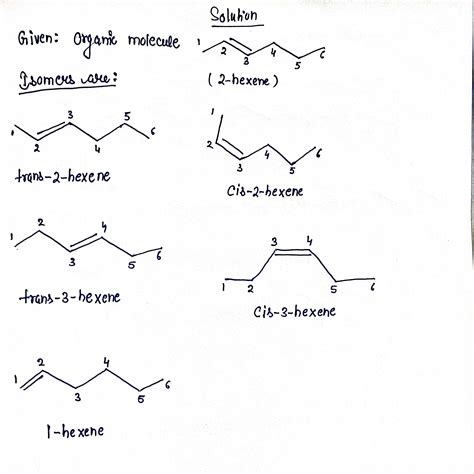 Solution
Given: Organic molecule
1 2 3 4 5 6
(2-hexene)
Isomers are:
1 2 3 4 5 6
trans-2-hexene
1 2 3 4 5 6
Cis-2-hexene
1 2 3 4 5 6
trans-3-hexene
1 2 3 4 5 6
Cis-3-hexene
1 2 3 4 5 6
1-hexene